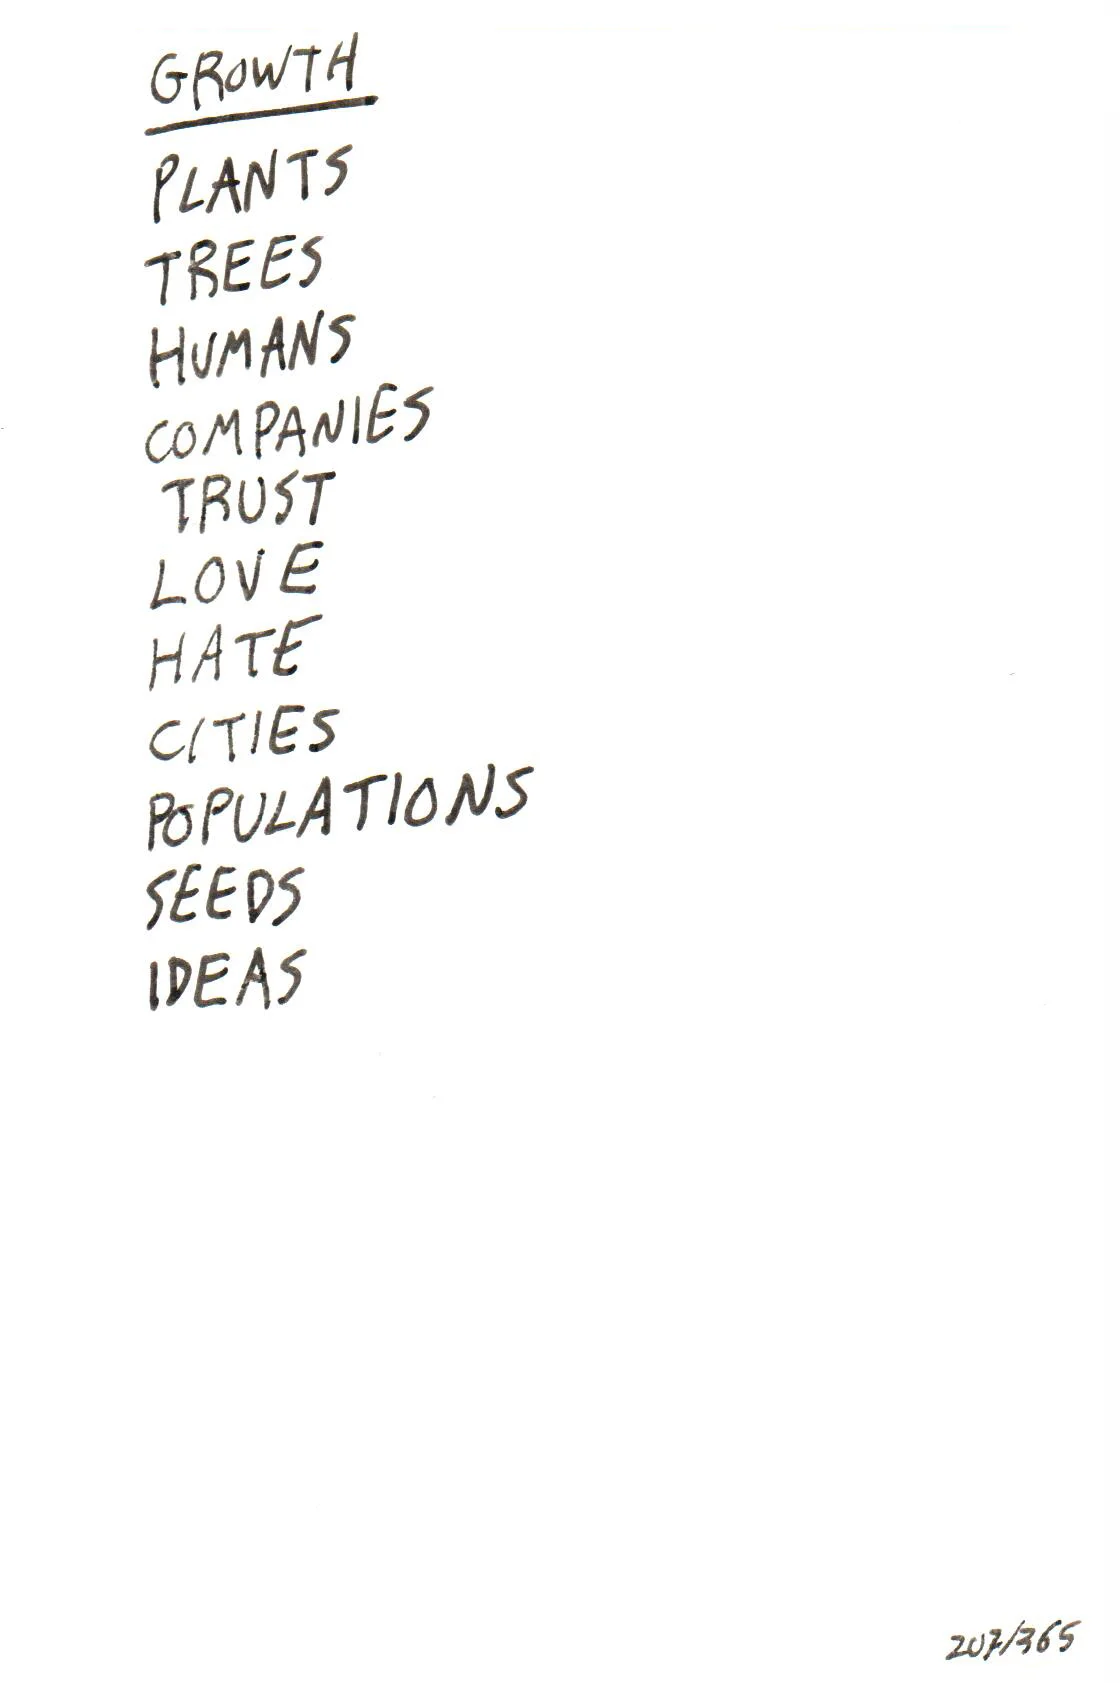 GROWTH
PLANTS
TREES
HUMANS
COMPANIES
TRUST
LOVE
HATE
CITIES
POPULATIONS
SEEDS
IDEAS
207/365